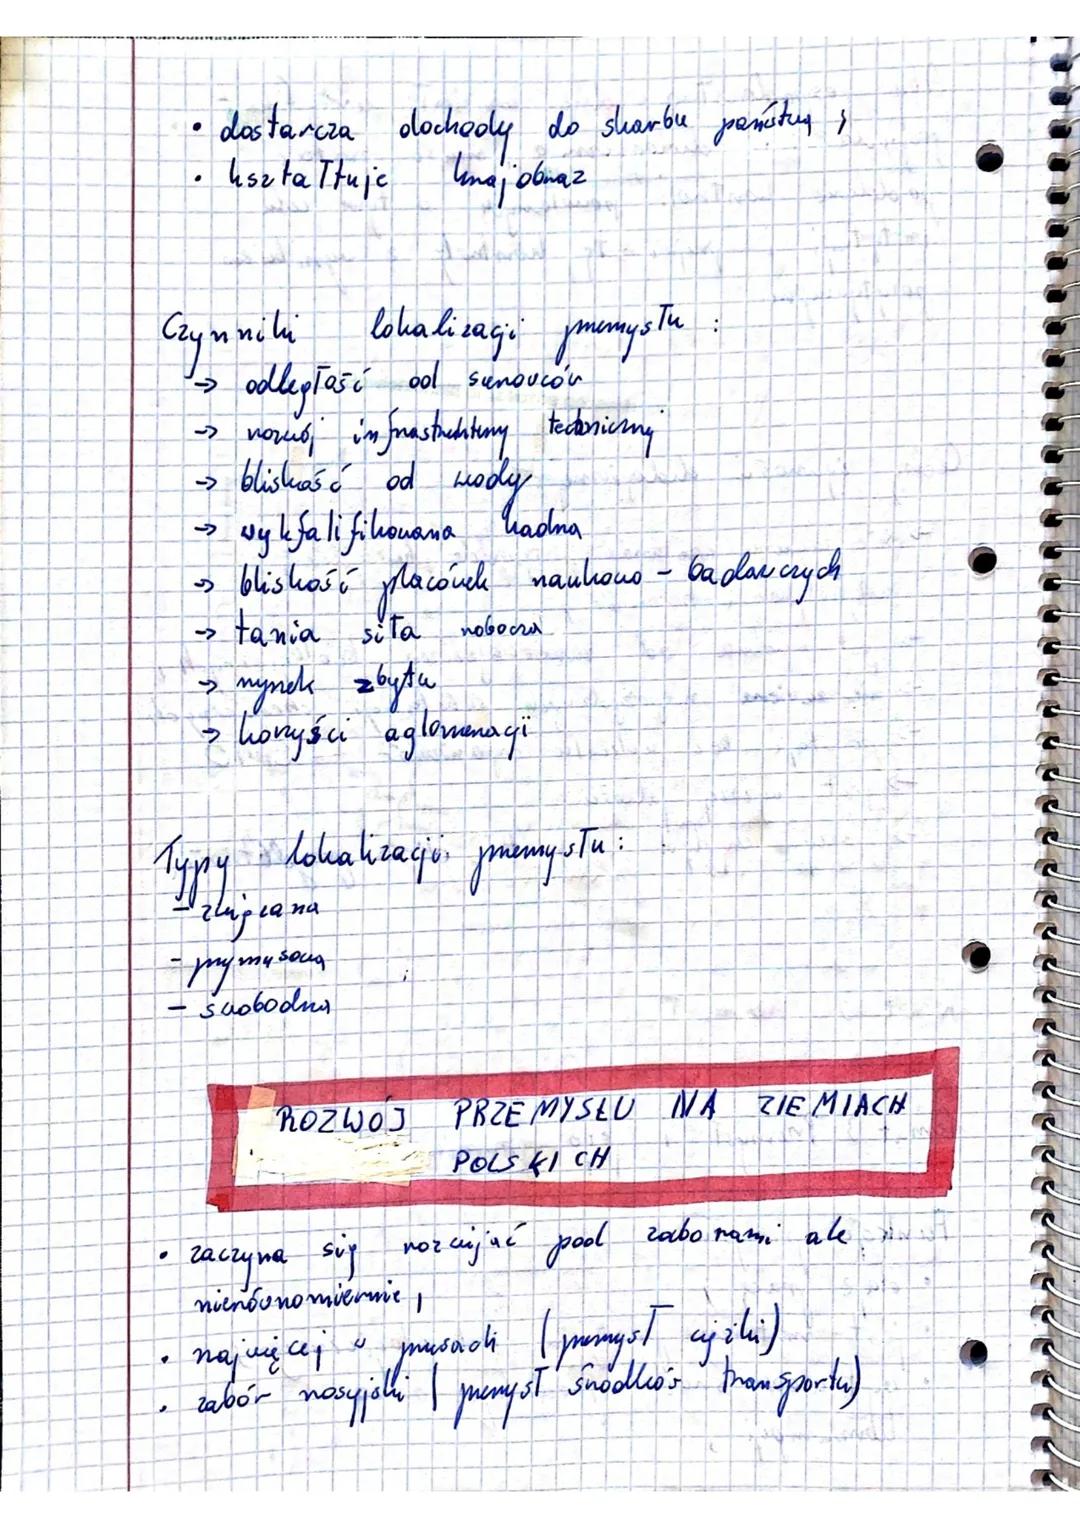 • dostarcza dochody do skarbu państwa ;
• kształtuje krajobraz
Czynniki lokalizacji przemysłu :
→ odległość od surowców
→ rozwój infrastruktury technicznej
→ bliskość od wody
→ wykfalifikowana kadra
→ bliskość placówek naukowo - badawczych
→ tania siła robocza
→ rynek zbytu
→ korzyści aglomeracji
Typy lokalizacji przemysłu :
- związana
- przymusowa
- swobodna
ROZWÓJ PRZEMYSŁU NA ZIEMIACH
POLSKICH
• zaczyna się rozwijać pod zaborami ale
nierównomiernie ,
• najwięcej w prusach ( przemysł ciężki )
• zabór rosyjski ( przemysł środków transportu )